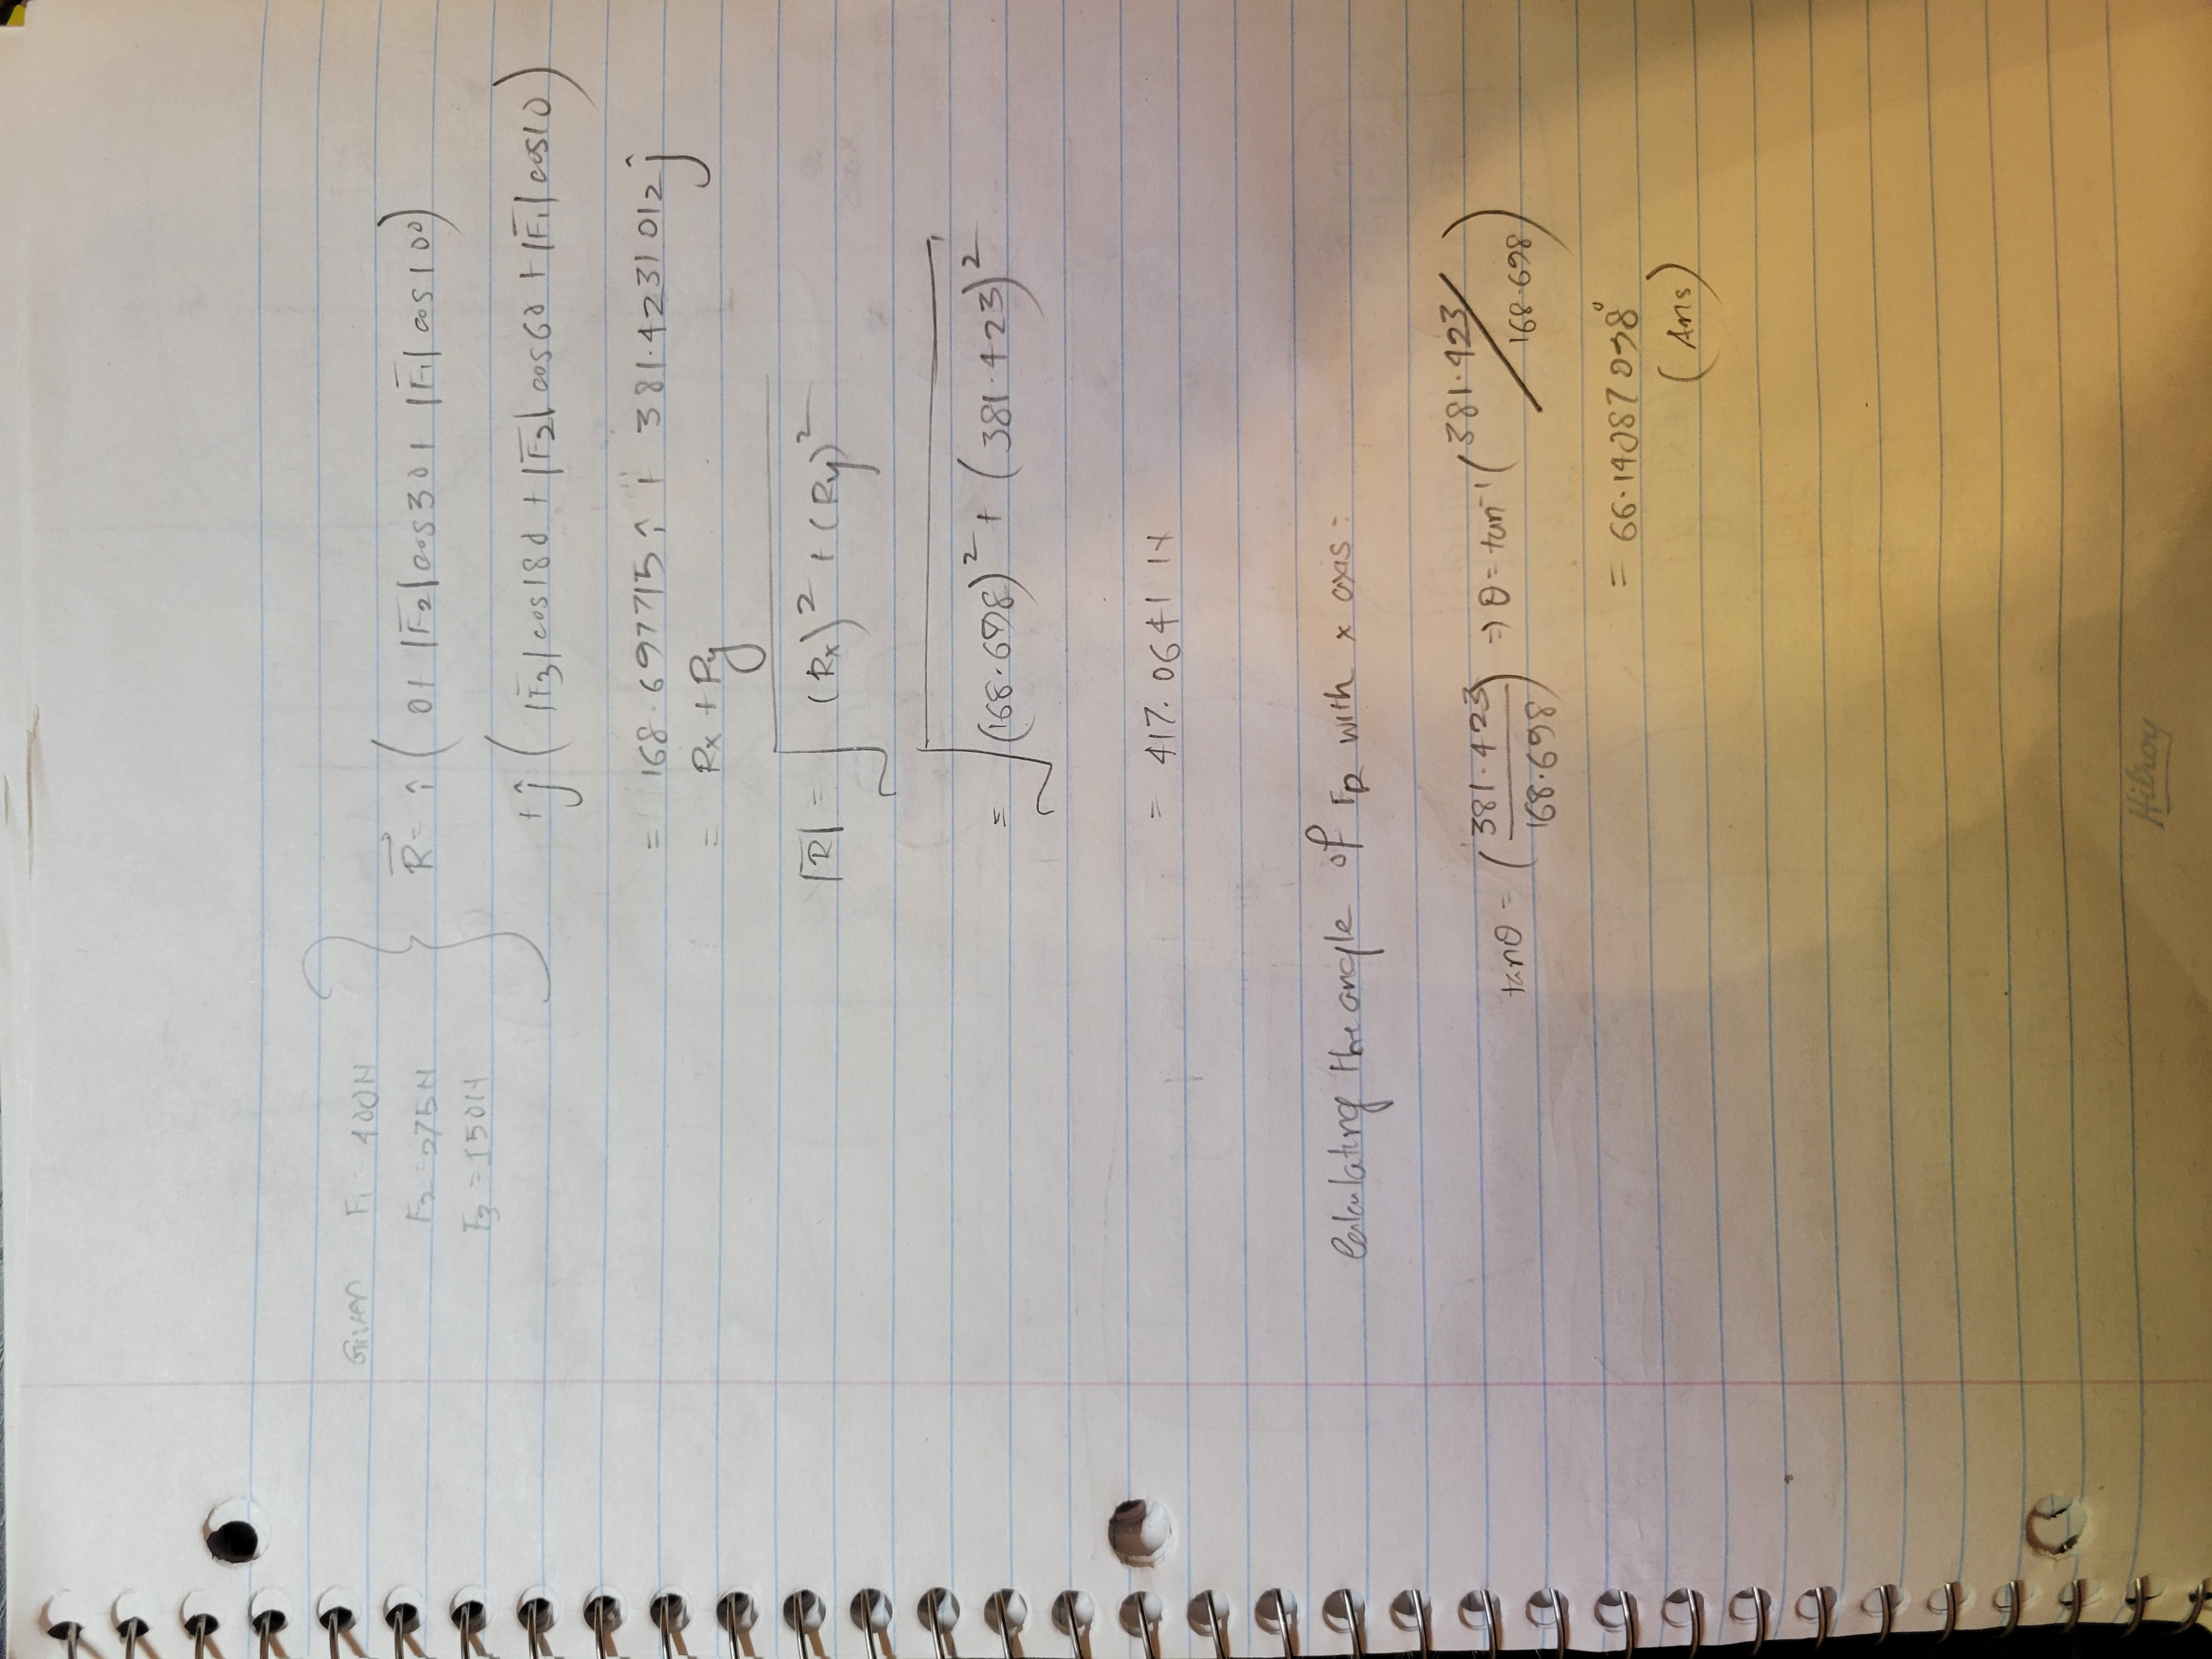 Given F₁ = 400N
F₂ = 275N
F₃ = 150N
R⃗ = î ( 0 + |F̄₂| cos30 + |F̄₁| cos100 )
+ ĵ ( |F̄₃| cos180 + |F̄₂| cos60 + |F̄₁| cos10 )
= 168.697715 î + 381.4231012 ĵ
= Rx + Ry
|R̄| = √( (Rx)² + (Ry)² )
= √( (168.698)² + (381.423)² )
= 417.0641 N
Calculating the angle of F_R with x axis:
tanθ = (381.423 / 168.698) ⇒ θ = tan⁻¹ (381.423 / 168.698)
= 66.14087038°
(Ans)
Hilroy